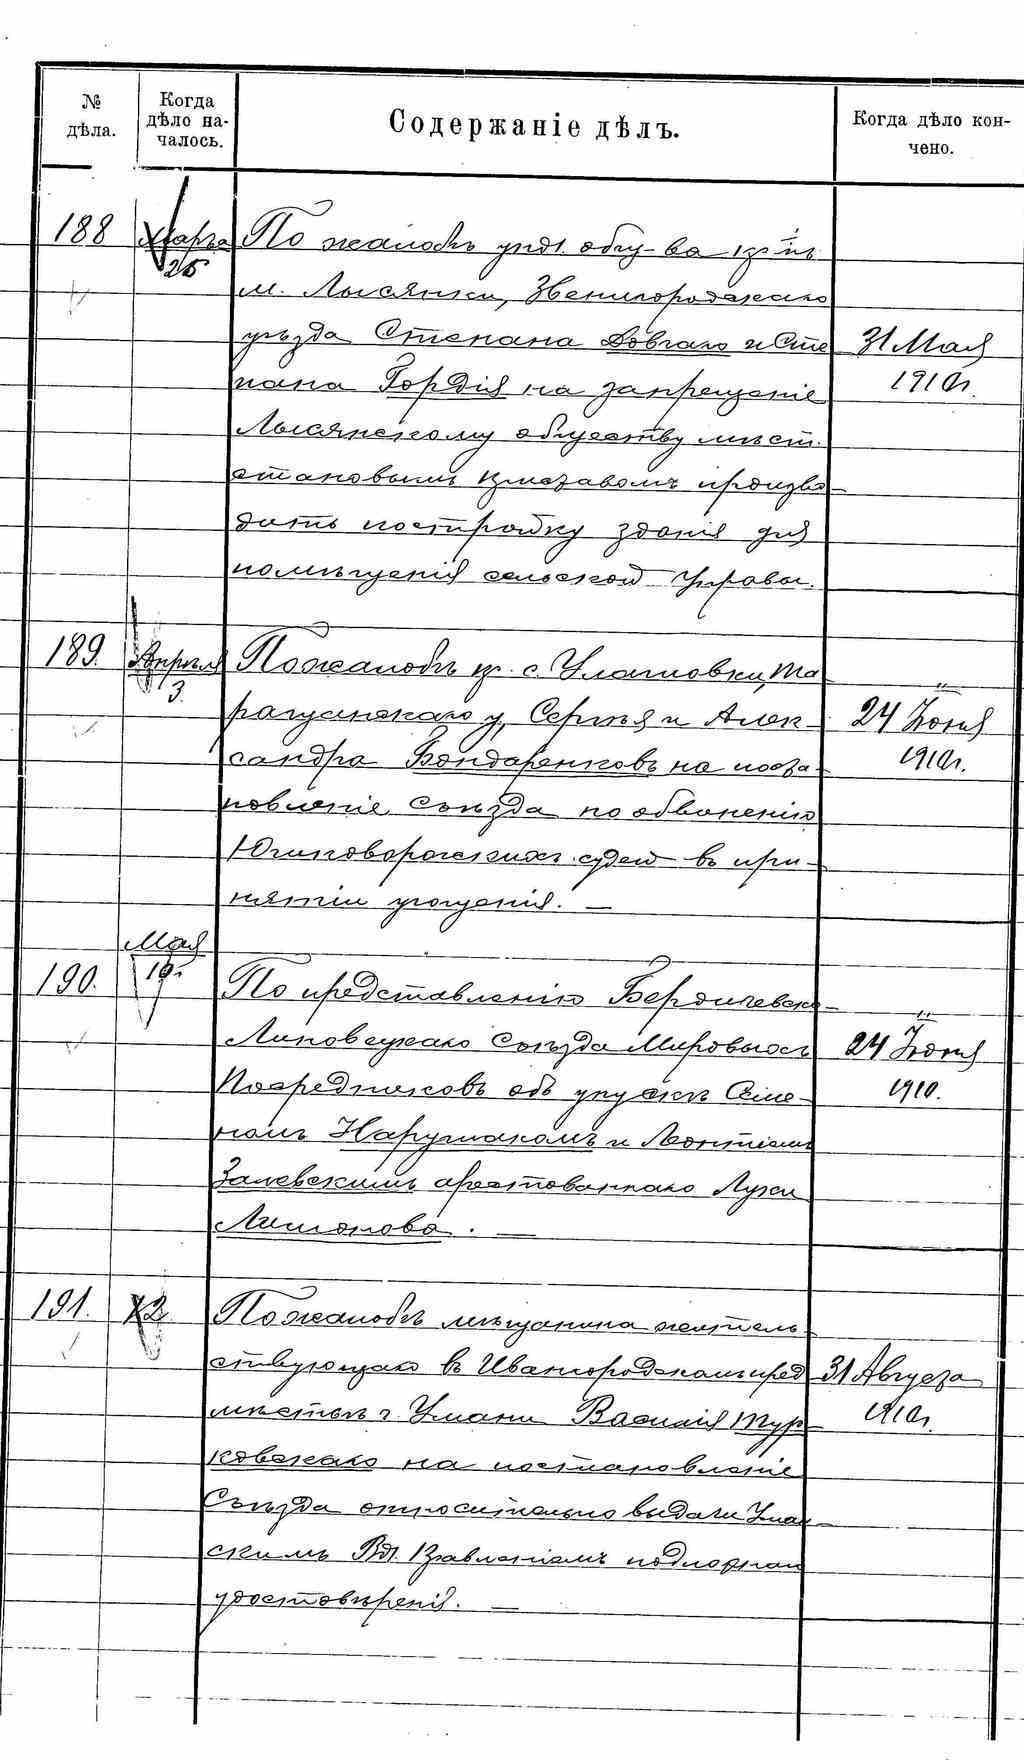 № дѣла.
Когда дѣло на-
чалось.
Содержаніе дѣлъ.
Когда дѣло кон-
чено.
188 Марта 25
По жалобѣ упол. общ-ва кр-нъ
м. Лысянки, Звенигородскаго
уѣзда Степана Довгаго и Сте
пана Гордія на запрещеніе
Лысянскому обществу мѣст.
становымъ приставомъ произво-
дить постройку зданія для
помѣщенія сельской Управы.
31 Мая
1910г.
189. Апрѣля 3.
По жалобѣ кр. с. Улашовки, Та
ращанскаго у, Сергѣя и Алек-
сандра Бондаренковъ на поста-
новленіе Съѣзда по обвиненію
судей въ при-
нятіи угощенія. —
24 Іюня
1910г.
190. Мая 19.
По представленію Бердичевско-
Липовецкаго Съѣзда Мировыхъ
Посредниковъ объ упускѣ Семе-
номъ и Леонтіемъ
Залевскимъ арестованнаго Луки
Лимонова. —
24 Іюня
1910.
191. 12
По жалобѣ мѣщанина житель-
ствующаго въ Ивангородскомъ пред
мѣстьѣ г. Умани Василія Тур-
ковскаго на постановленіе
Съѣзда относительно выдачи Уман-
скимъ Вол. Правленіемъ подложнаго
удостовѣренія. —
31 Августа
1910г.